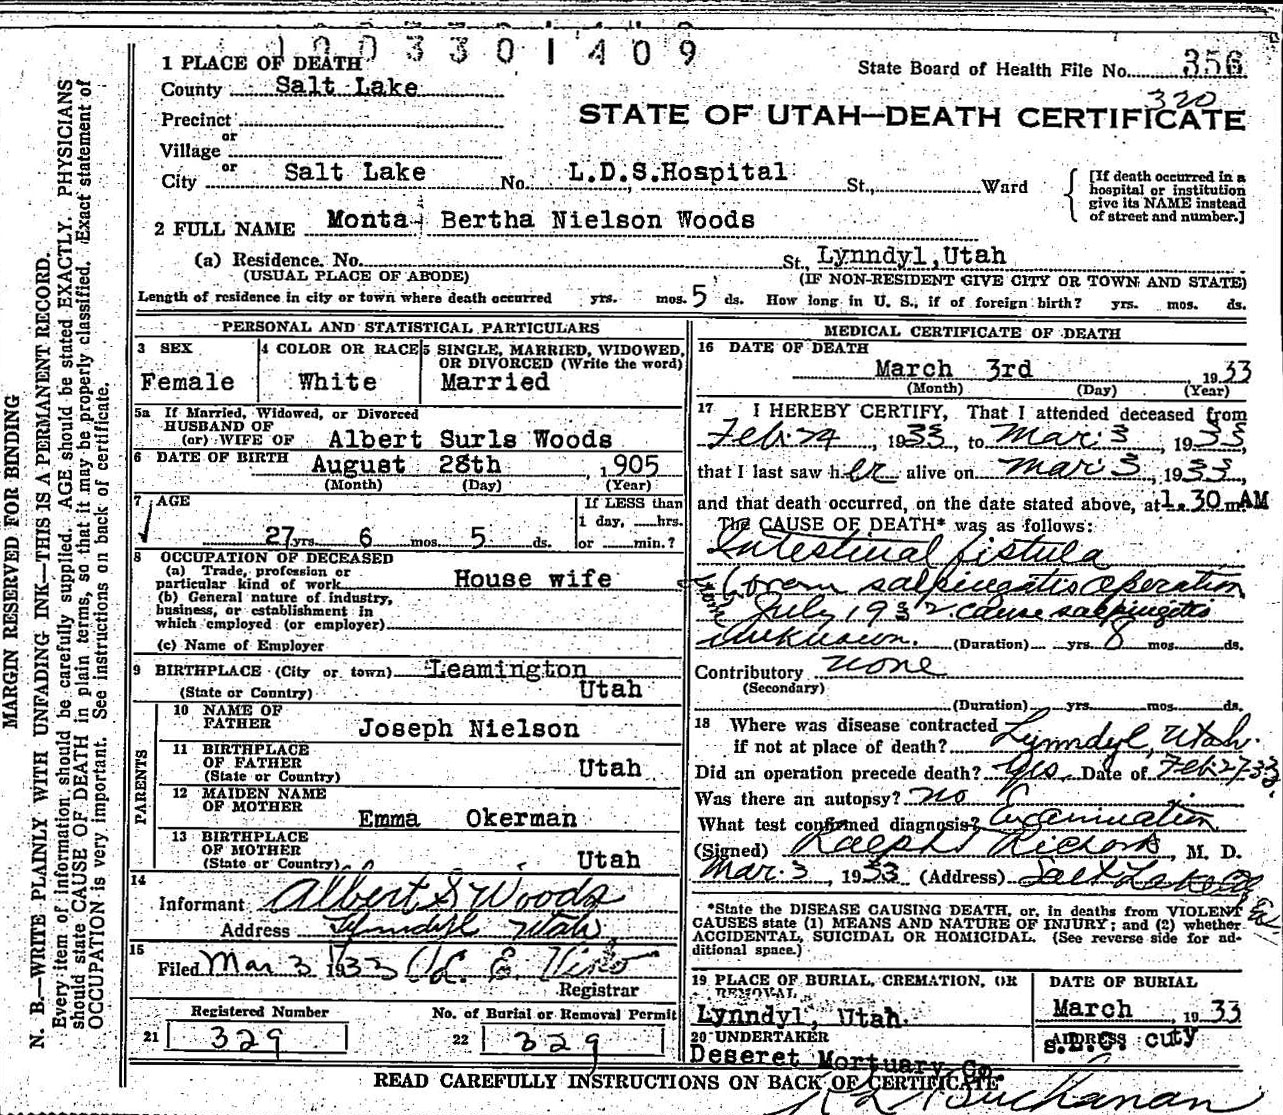 1003301409
1 PLACE OF DEATH
State Board of Health File No. 356
County Salt Lake
320
STATE OF UTAH—DEATH CERTIFICATE
Precinct
or
Village
or
City Salt Lake No. L.D.S. Hospital St., Ward
[If death occurred in a hospital or institution give its NAME instead of street and number.]
2 FULL NAME Monta Bertha Nielson Woods
(a) Residence. No. St. Lynndyl, Utah
(USUAL PLACE OF ABODE) (IF NON-RESIDENT GIVE CITY OR TOWN AND STATE)
Length of residence in city or town where death occurred yrs. mos. 5 ds. How long in U. S., if of foreign birth? yrs. mos. ds.
PERSONAL AND STATISTICAL PARTICULARS
3 SEX
Female
4 COLOR OR RACE
White
5 SINGLE, MARRIED, WIDOWED, OR DIVORCED (Write the word)
Married
5a If Married, Widowed, or Divorced
HUSBAND OF
(or) WIFE OF Albert Surls Woods
6 DATE OF BIRTH August 28th, 1905
(Month) (Day) (Year)
7 AGE
27 yrs. 6 mos. 5 ds.
If LESS than
1 day, hrs.
or min.?
8 OCCUPATION OF DECEASED
(a) Trade, profession or
particular kind of work House wife
(b) General nature of industry,
business, or establishment in
which employed (or employer)
(c) Name of Employer
9 BIRTHPLACE (City or town) Leamington
(State or Country) Utah
PARENTS
10 NAME OF
FATHER Joseph Nielson
11 BIRTHPLACE
OF FATHER
(State or Country) Utah
12 MAIDEN NAME
OF MOTHER Emma Okerman
13 BIRTHPLACE
OF MOTHER
(State or Country) Utah
14
Informant Albert S Woods
Address Lynndyl Utah
15
Filed Mar 3 1933
Registrar
Registered Number
21 329
No. of Burial or Removal Permit
22 329
MEDICAL CERTIFICATE OF DEATH
16 DATE OF DEATH
March 3rd 1933
(Month) (Day) (Year)
17 I HEREBY CERTIFY, That I attended deceased from
Feb. 24, 1933, to Mar. 3, 1933,
that I last saw her alive on Mar 3, 1933,
and that death occurred, on the date stated above, at 1.30 m. AM
The CAUSE OF DEATH* was as follows:
Intestinal fistula
from salpingitis operation
July 1932. cause salpingitis
unknown. (Duration) yrs. 8 mos. ds.
Contributory none
(Secondary)
(Duration) yrs. mos. ds.
18 Where was disease contracted
if not at place of death? Lynndyl, Utah.
Did an operation precede death? Yes Date of Feb 27-33.
Was there an autopsy? no
What test confirmed diagnosis? Examination
(Signed) Ralph Richards, M. D.
Mar. 3, 1933 (Address) Salt Lake
*State the DISEASE CAUSING DEATH, or, in deaths from VIOLENT
CAUSES state (1) MEANS AND NATURE OF INJURY; and (2) whether
ACCIDENTAL, SUICIDAL OR HOMICIDAL. (See reverse side for ad-
ditional space.)
19 PLACE OF BURIAL, CREMATION, OR
REMOVAL
Lynndyl, Utah.
DATE OF BURIAL
March 1933
20 UNDERTAKER
Deseret Mortuary Co.
ADDRESS
S.L.C. city
READ CAREFULLY INSTRUCTIONS ON BACK OF CERTIFICATE
Buchanan
MARGIN RESERVED FOR BINDING
N. B.—WRITE PLAINLY WITH UNFADING INK—THIS IS A PERMANENT RECORD.
Every item of information should be carefully supplied. AGE should be stated EXACTLY. PHYSICIANS
should state CAUSE OF DEATH in plain terms, so that it may be properly classified. Exact statement of
OCCUPATION is very important. See instructions on back of certificate.